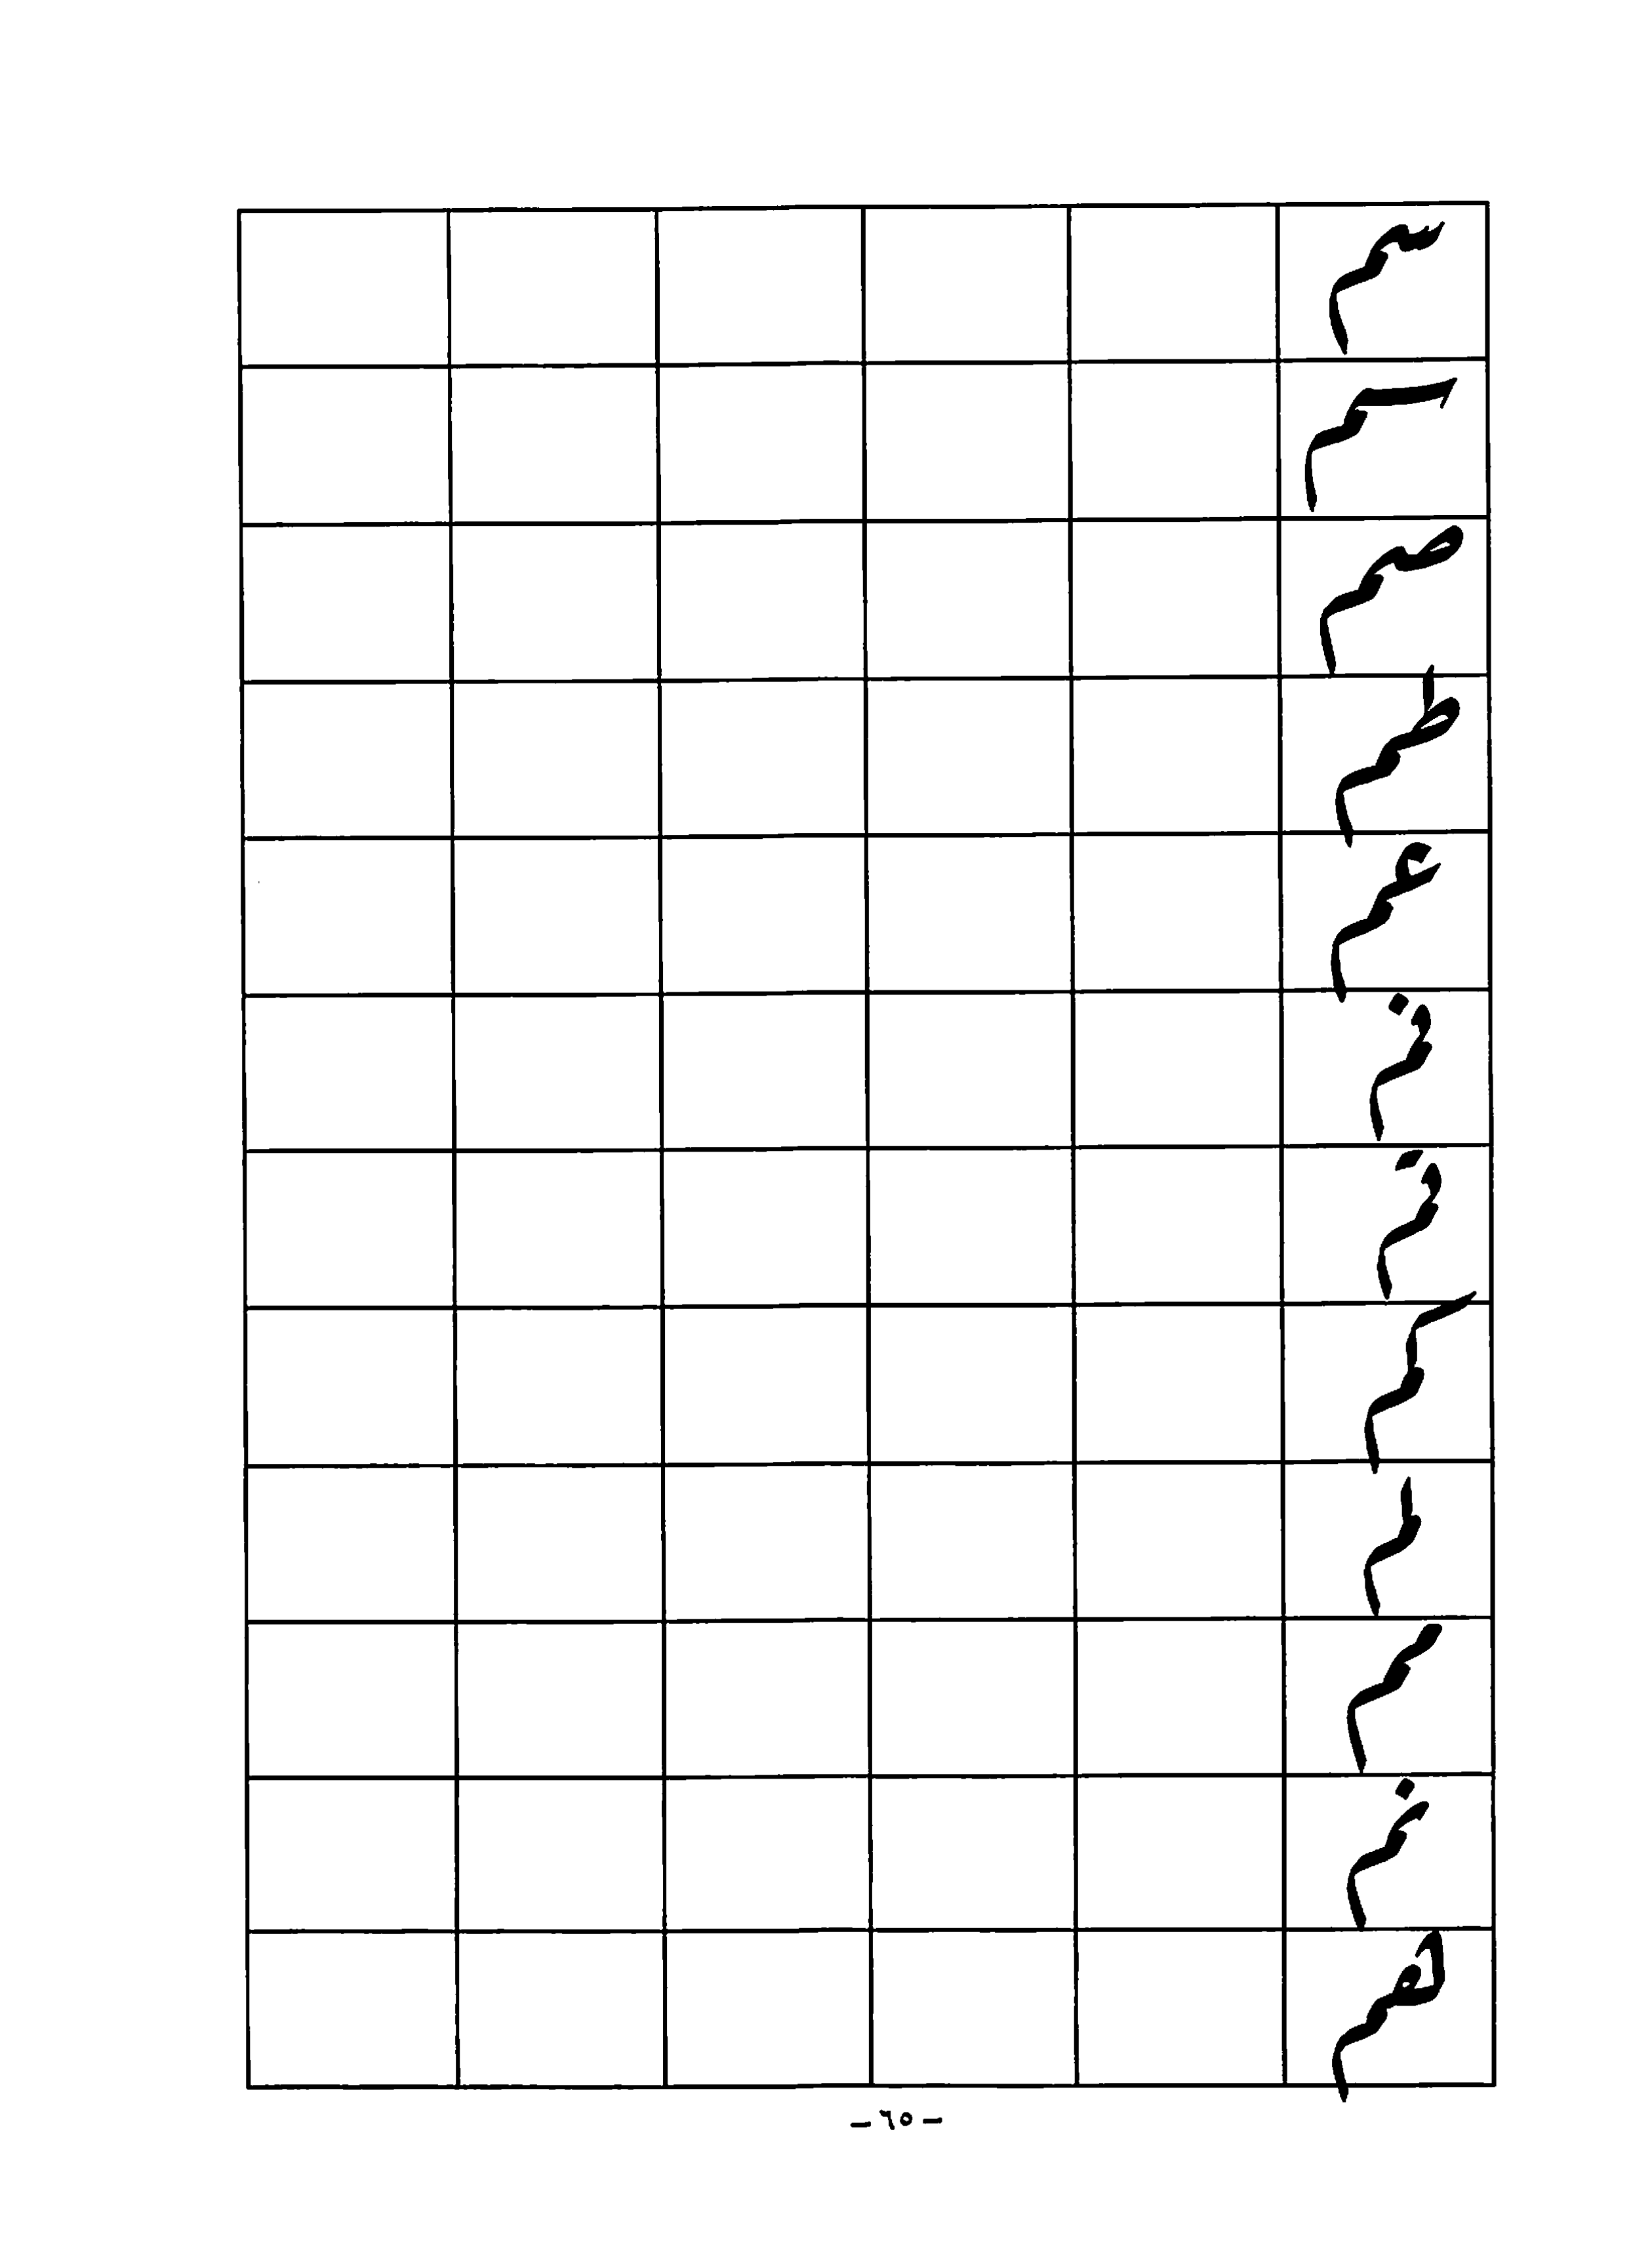 سم
سم
صم
طم
عم
فم
قم
كم
لم
مم
نم
هم
- ٦٥ -